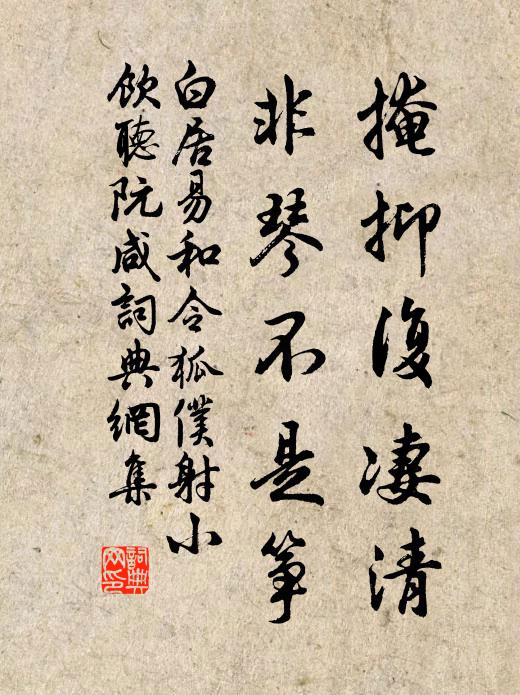 掩抑復淒清
非琴不是箏
白居易和令狐僕射小
飲聽阮咸詞典網集
詞典网印